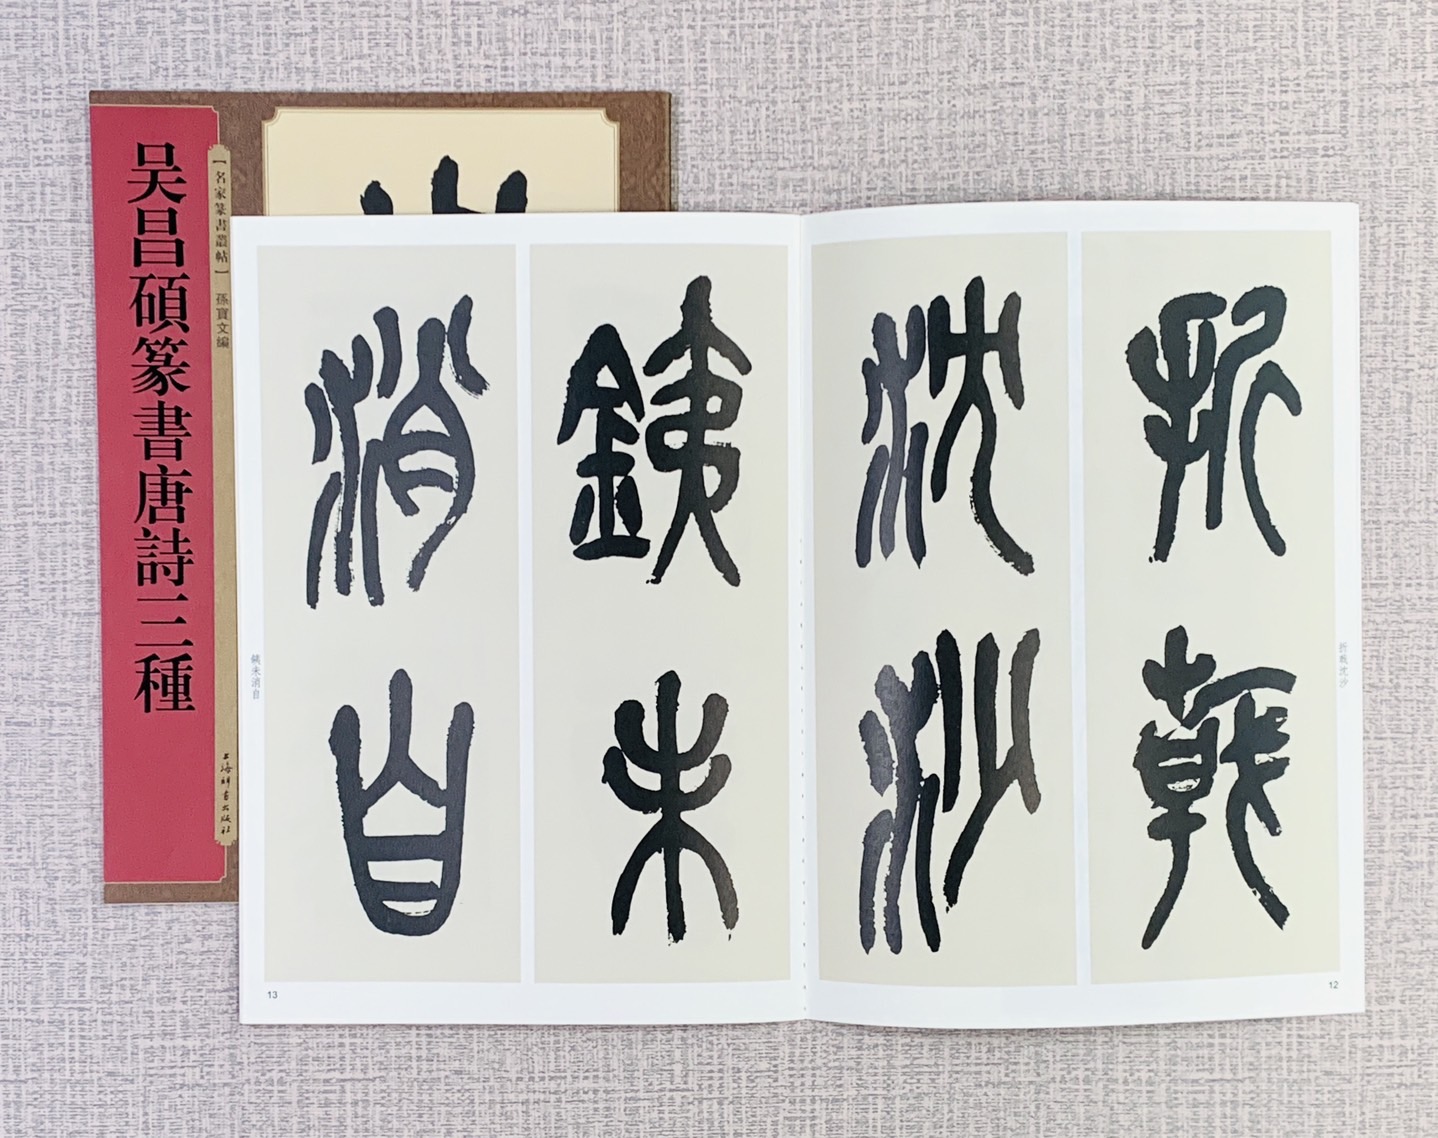 吴昌碩篆書唐詩三種
【名家篆書叢帖】 孫寶文編
上海辭書出版社
折戟
沈沙
折戟沈沙
12
銕未
消自
銕未消自
13